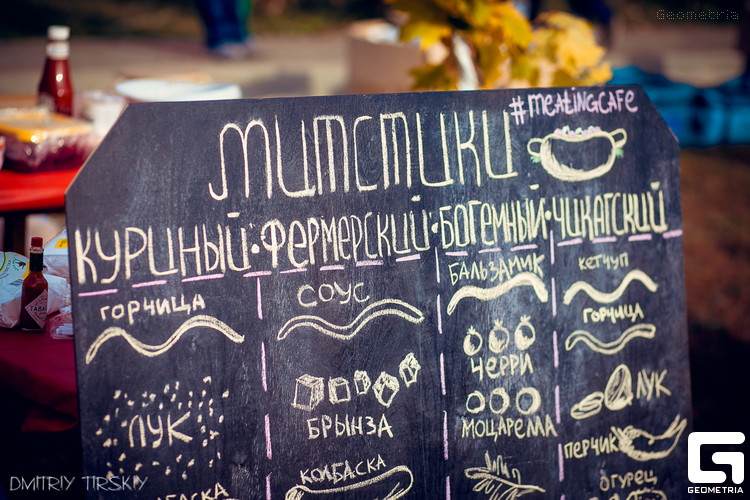 Geometria
#MEATINGCAFE
МИТСТИКИ
КУРИНЫЙ·ФЕРМЕРСКИЙ·БОГЕМНЫЙ·ЧИКАГСКИЙ
ГОРЧИЦА
СОУС
БАЛЬЗАМИК
КЕТЧУП
ГОРЧИЦА
ЧЕРРИ
ЛУК
БРЫНЗА
МОЦАРЕЛЛА
ЛУК
ПЕРЧИК
КОЛБАСКА
ОГУРЕЦ
КОЛБАСКА
TABA
DMITRIY TIRSKIY
GEOMETRIA